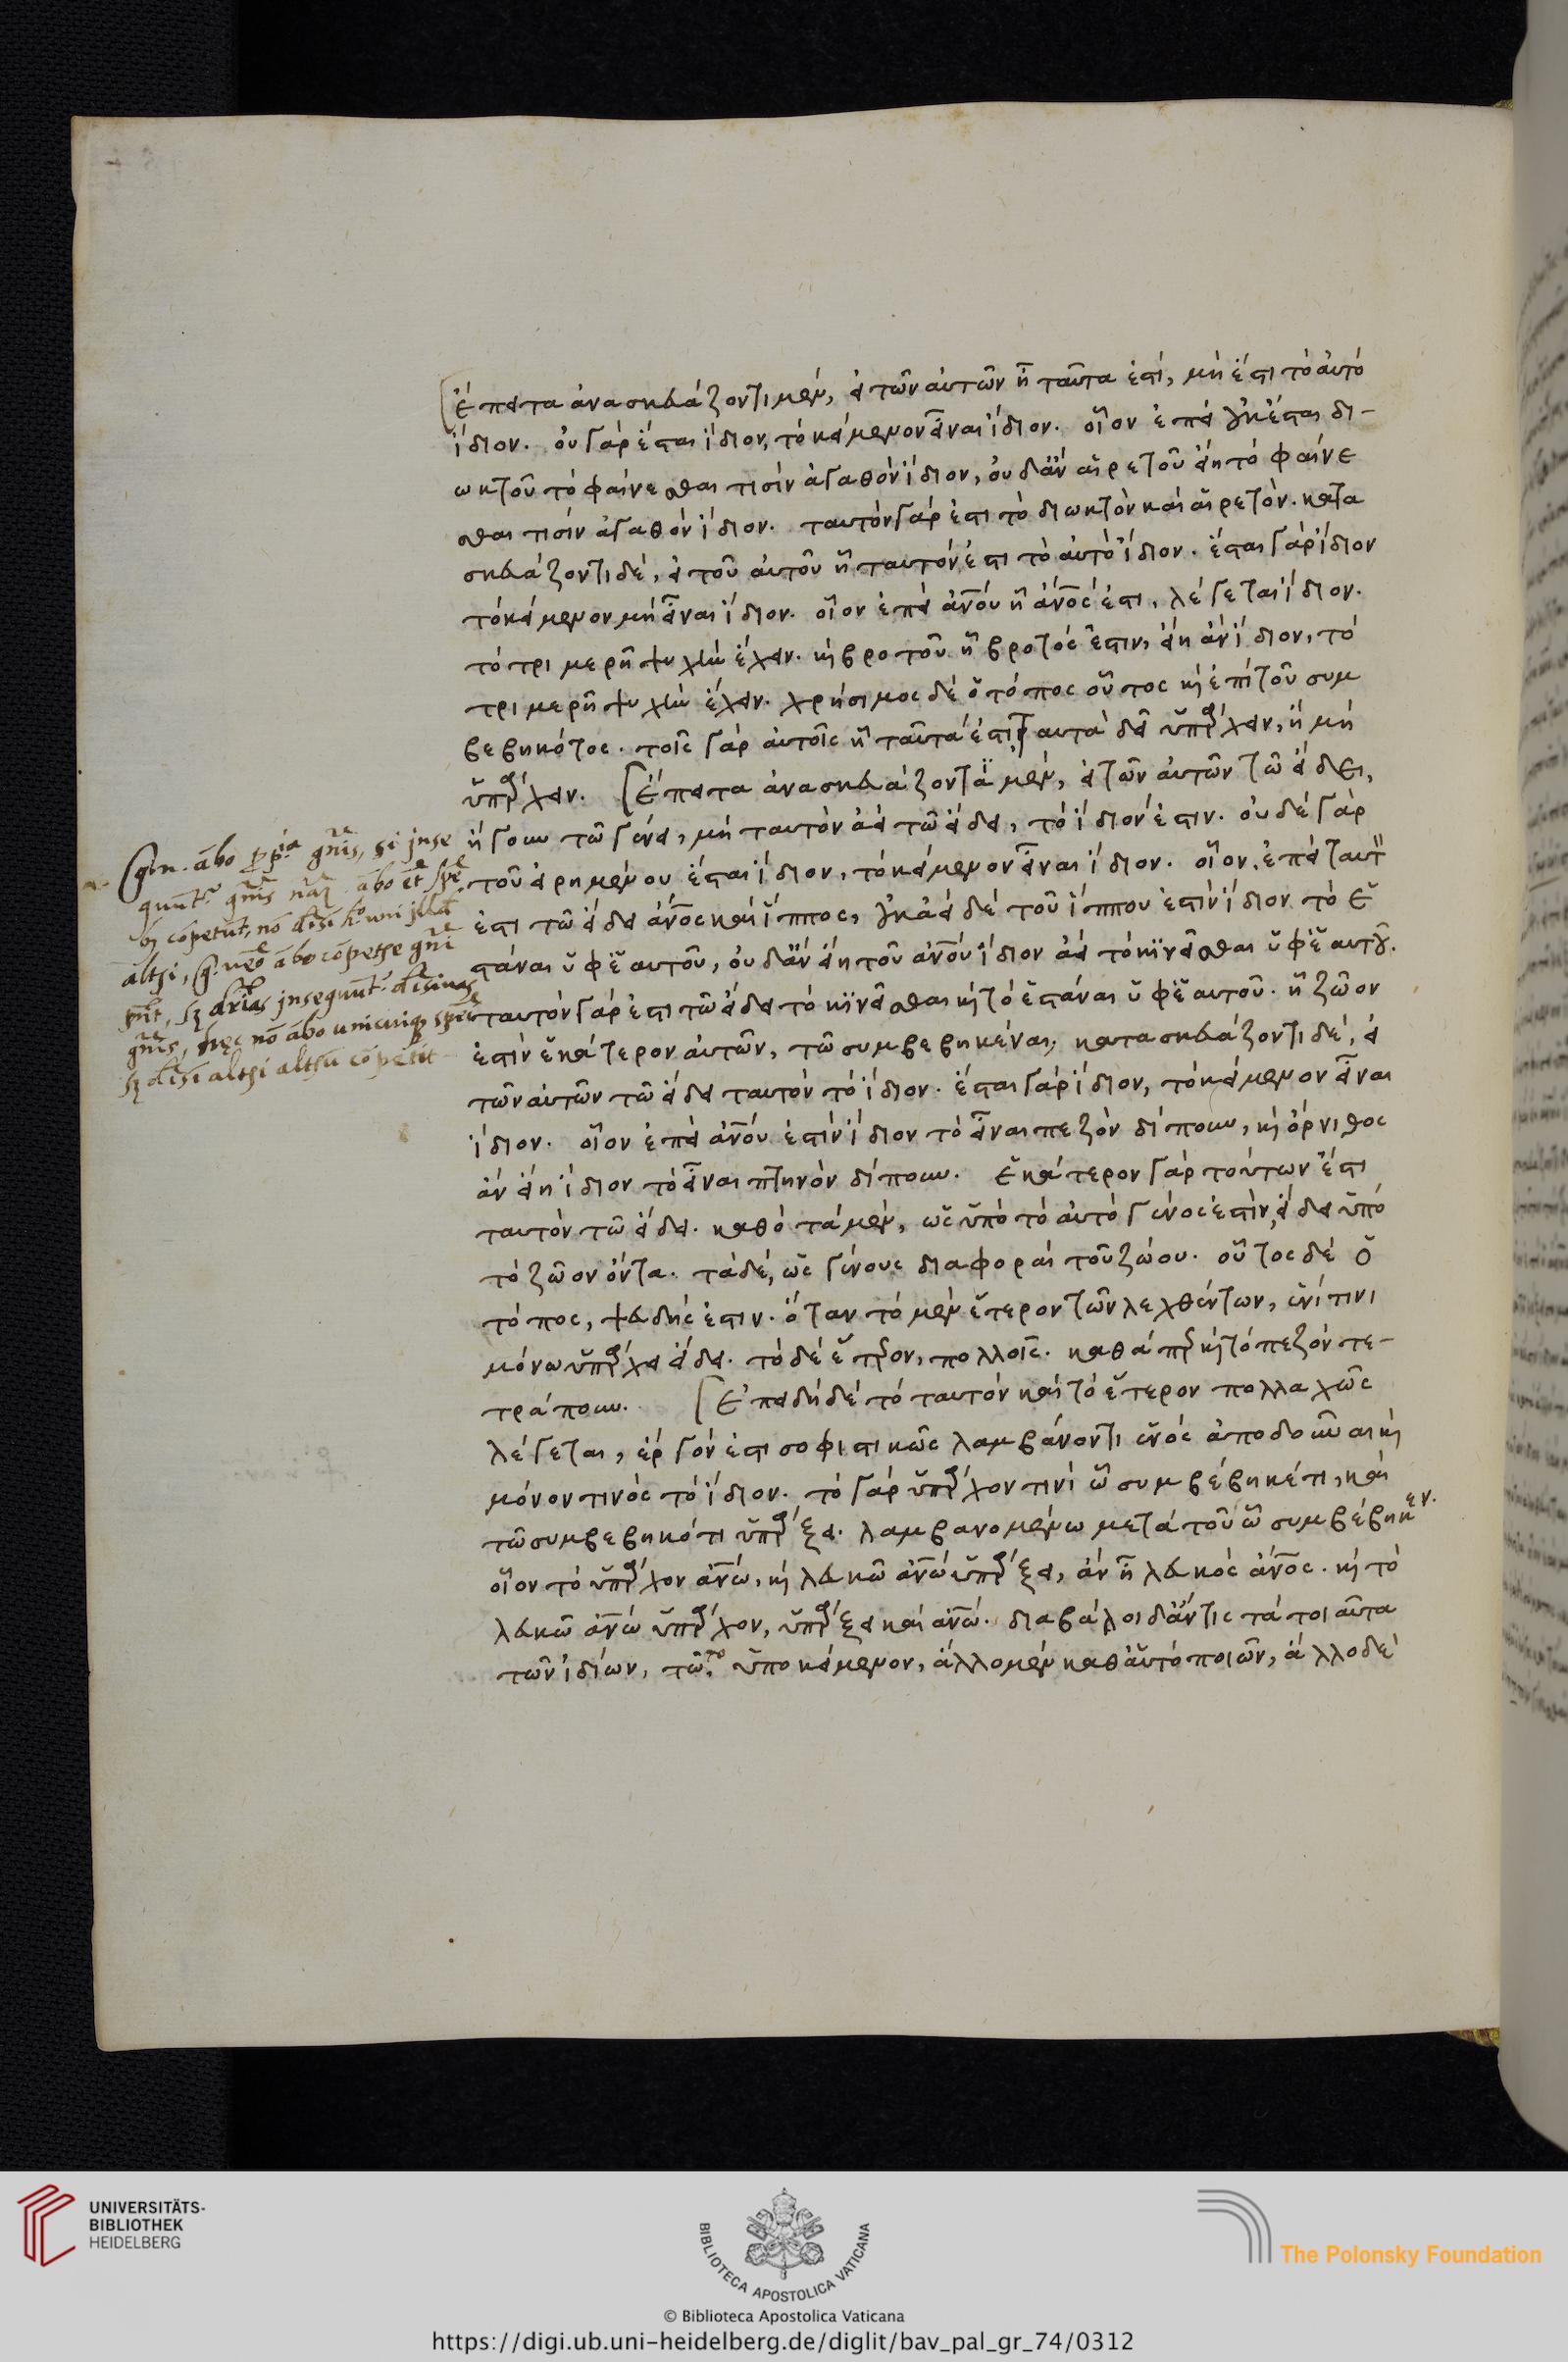 ἔπειτα ἀνασκευάζοντι μὲν, εἰ τῶν αὐτῶν ἧ ταῦτα ἐστι, μὴ ἔστι τὸ αὐτὸ
ἴδιον. οὐ γὰρ ἔσται ἴδιον, τὸ κείμενον εἶναι ἴδιον. οἷον ἐπεὶ οὐκ ἔσται δι-
ωκτοῦ τὸ φαίνεσθαι τισὶν ἀγαθὸν ἴδιον, οὐδ' ἂν αἱρετοῦ εἴη τὸ φαίνε
σθαι τισὶν ἀγαθὸν ἴδιον. ταυτὸν γάρ ἐστι τὸ διωκτὸν καὶ αἱρετὸν. κατα
σκευάζοντι δὲ, εἰ τοῦ αὐτοῦ ἧ ταυτόν ἐστι τὸ αὐτὸ ἴδιον. ἔσται γὰρ ἴδιον
τὸ κείμενον μὴ εἶναι ἴδιον. οἷον ἐπεὶ ἀνοῦ ἧ ἀνος ἐστι, λέγεται ἴδιον.
τὸ τριμερῆ ψυχὴν ἔχειν. καὶ βροτοῦ ἧ βροτός ἐστιν, εἴη ἂν ἴδιον, τὸ
τριμερῆ ψυχὴν ἔχειν. χρήσιμος δὲ ὁ τόπος οὗτος καὶ ἐπὶ τοῦ συμ
βεβηκότος. τοῖς γὰρ αὐτοῖς ἧ ταῦτά ἐστι ταυτὰ δεῖ ὑπάρχειν, ἢ μὴ
ὑπάρχειν. ἔπειτα ἀνασκευάζοντα μὲν, εἰ τῶν αὐτῶν τῶ εἴδει,
ἤγουν τῶ γένει, μὴ ταυτὸν ἀεὶ τῶ εἴδει, τὸ ἴδιόν ἐστιν. οὐδὲ γὰρ
τοῦ εἰρημένου ἔσται ἴδιον, τὸ κείμενον εἶναι ἴδιον. οἷον ἐπεὶ ταυτ
ἐστι τῶ εἴδει ἀνος καὶ ἵππος, οὐκ ἀεὶ δὲ τοῦ ἵππου ἐστὶν ἴδιον τὸ ἑ
στάναι ὑφ' ἑαυτοῦ, οὐδ' ἂν εἴη τοῦ ἀνοῦ ἴδιον ἀεὶ τὸ κινεῖσθαι ὑφ' ἑαυτοῦ.
ταυτὸν γάρ ἐστι τῶ εἴδει τὸ κινεῖσθαι καὶ τὸ ἑστάναι ὑφ' ἑαυτοῦ. ἧ ζῶον
ἐστὶν ἑκάτερον αὐτῶν, τῶ συμβεβηκέναι, κατασκευάζοντι δὲ, εἰ
τῶν αὐτῶν τῶ εἴδει ταυτὸν τὸ ἴδιον. ἔσται γὰρ ἴδιον, τὸ κείμενον εἶναι
ἴδιον. οἷον ἐπεὶ ἀνοῦ ἐστὶν ἴδιον τὸ εἶναι πεζὸν δίπουν, καὶ ὄρνιθος
ἂν εἴη ἴδιον τὸ εἶναι πτηνὸν δίπουν. ἑκάτερον γὰρ τούτων ἐστι
ταυτὸν τῶ εἴδει. καθὸ τὰ μὲν, ὡς ὑπὸ τὸ αὐτὸ γένος ἐστὶν, εἴδει ὑπὸ
τὸ ζῶον ὄντα. τὰ δὲ, ὡς γένους διαφοραὶ τοῦ ζώου. οὗτος δὲ ὁ
τόπος, ψευδής ἐστιν. ὅταν τὸ μὲν ἕτερον τῶν λεχθέντων, ἑνί τινι
μόνω ὑπάρχει εἴδει. τὸ δὲ ἕτερον, πολλοῖς. καθάπερ καὶ τὸ πεζὸν τε-
τράπουν. Ἐπειδὴ δὲ τὸ ταυτὸν καὶ τὸ ἕτερον πολλαχῶς
λέγεται, ἔργόν ἐστι σοφιστικῶς λαμβάνοντι ἑνὸς ἀποδοῦναι καὶ
μόνον τινὸς τὸ ἴδιον. τὸ γὰρ ὑπάρχον τινὶ ὧ συμβέβηκέ τι, καὶ
τῶ συμβεβηκότι ὑπάρξει. λαμβανομένω μετὰ τοῦ ὧ συμβέβηκεν.
οἷον τὸ ὑπάρχον ἀνω, καὶ λευκῶ ἀνω ὑπάρξει, ἂν ἧ λευκὸς ἀνος. καὶ τὸ
λευκῶ ἀνω ὑπάρχον, ὑπάρξει καὶ ἀνω. διαβάλοι δ' ἄν τις τὰ τοιαῦτα
τῶν ἰδίων, τῶ τὸ ὑποκείμενον, ἄλλο μὲν καθ' αὑτὸ ποιῶν, ἄλλο δὲ
UNIVERSITÄTS-
BIBLIOTHEK
HEIDELBERG
BIBLIOTECA APOSTOLICA VATICANA
The Polonsky Foundation
© Biblioteca Apostolica Vaticana
https://digi.ub.uni-heidelberg.de/diglit/bav_pal_gr_74/0312